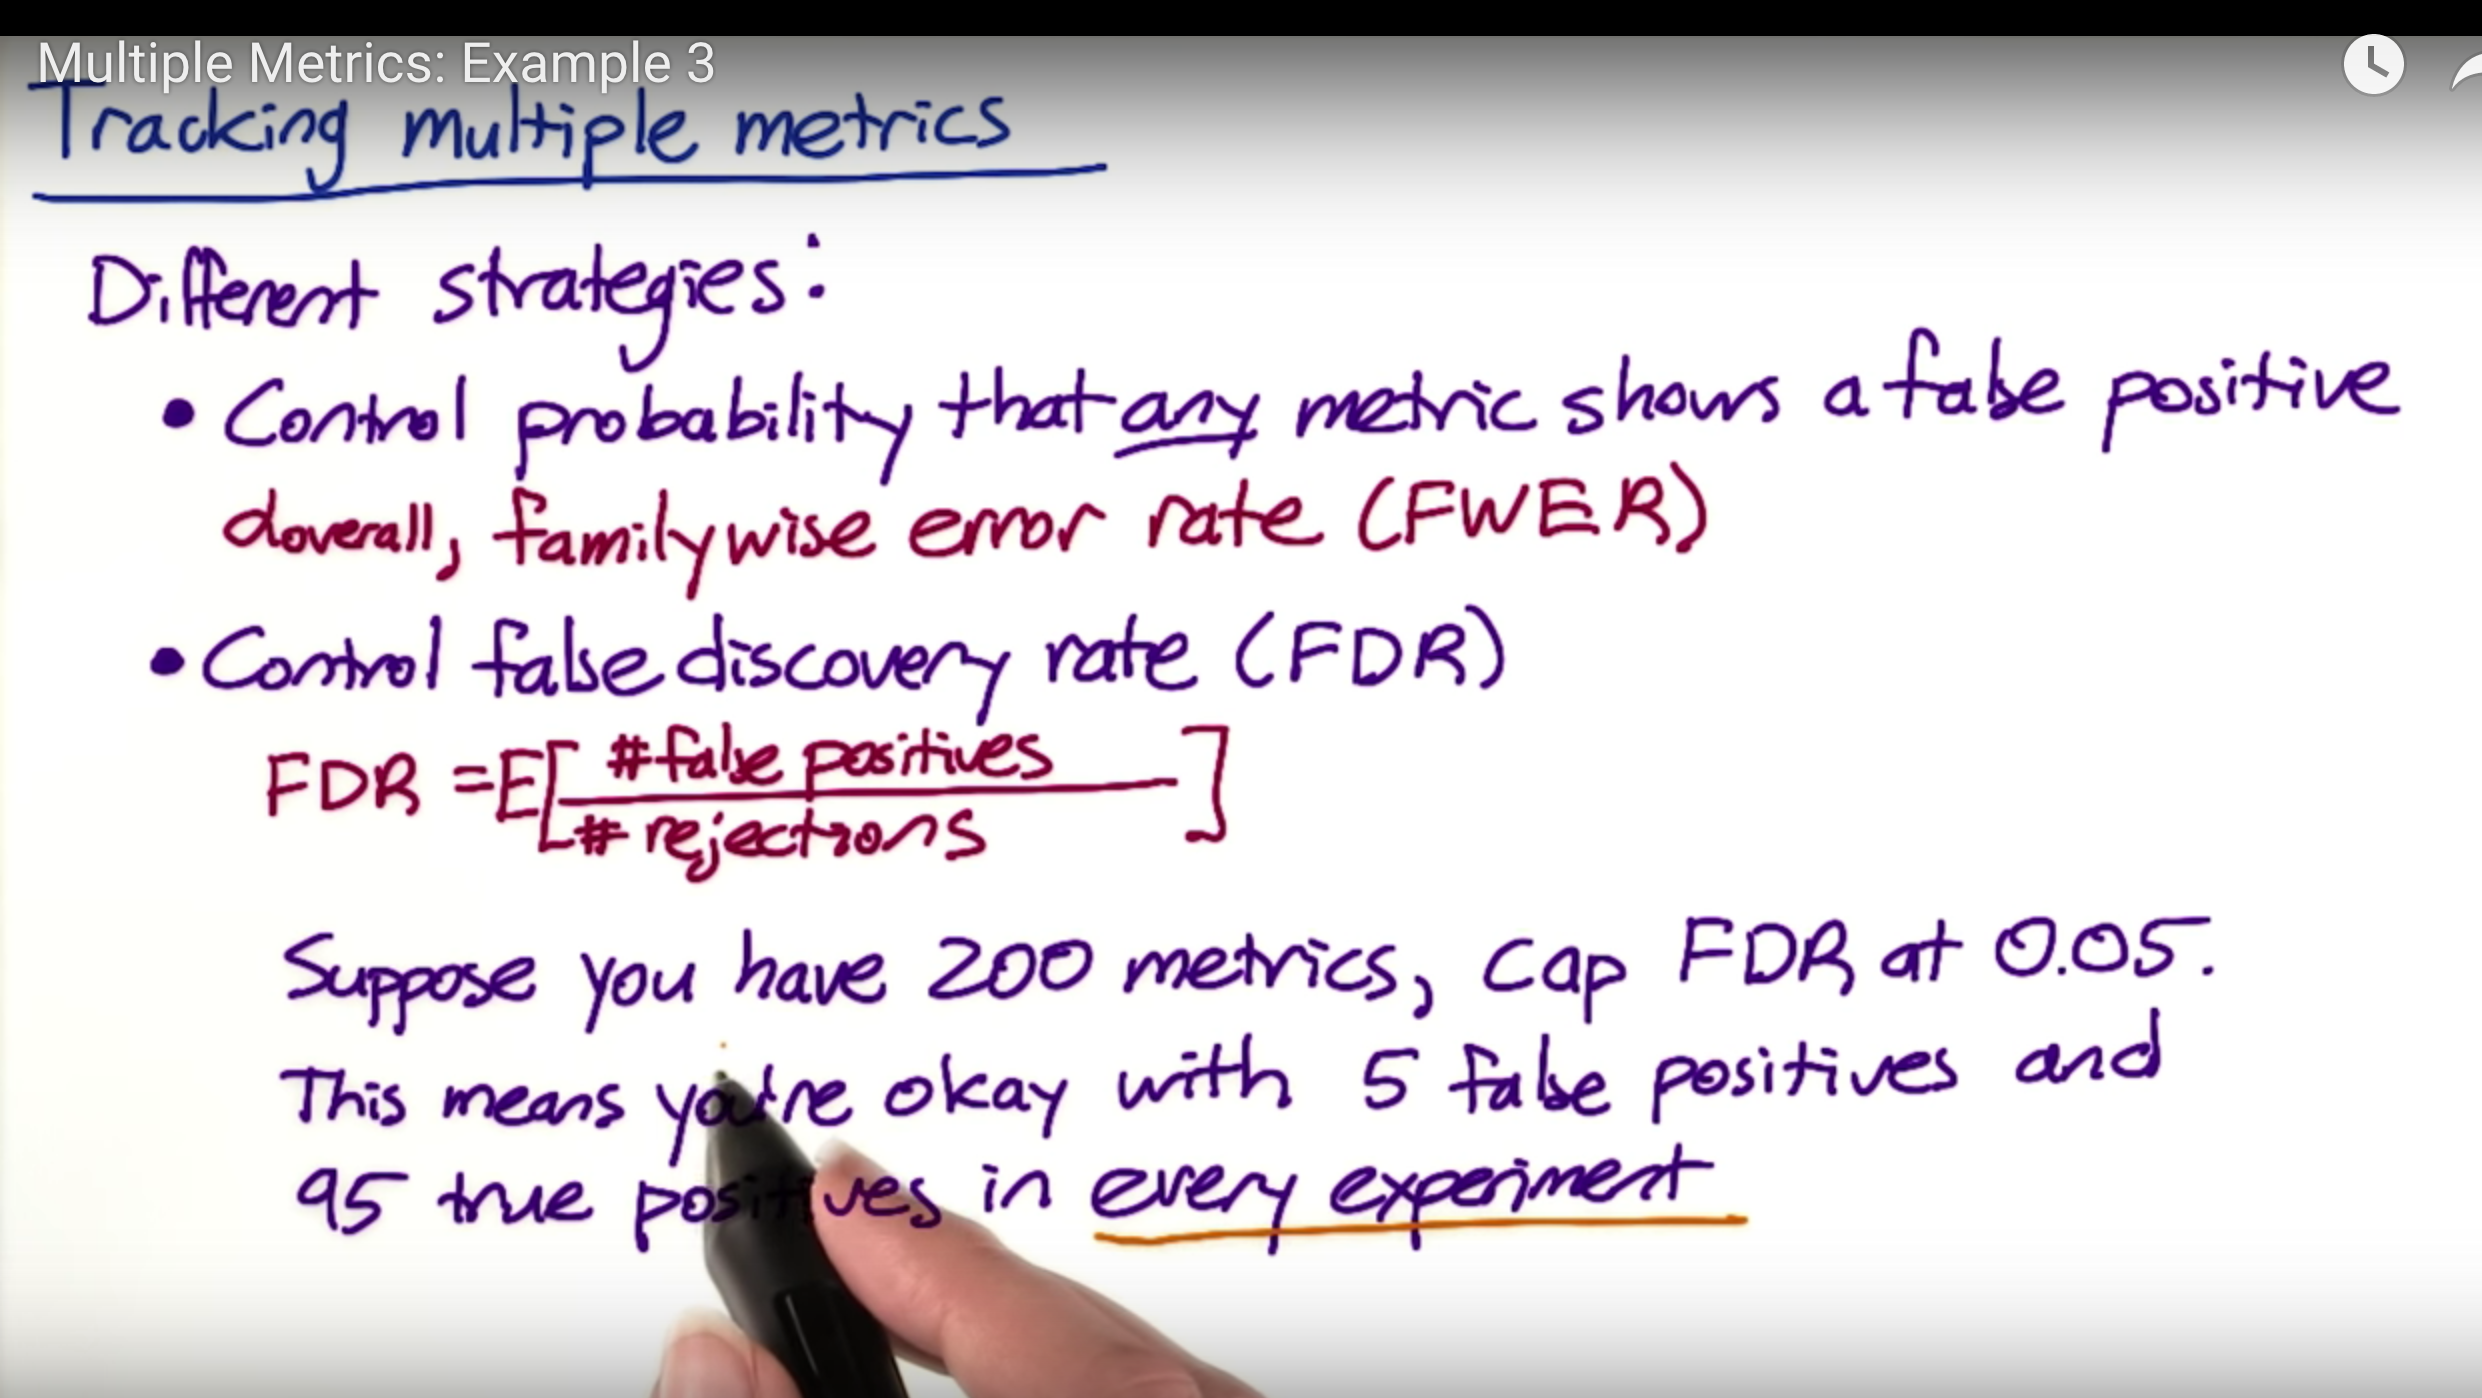 Multiple Metrics: Example 3
Tracking multiple metrics
Different strategies:
• Control probability that any metric shows a false positive
αoverall, familywise error rate (FWER)
• Control false discovery rate (FDR)
FDR = E[# false positives
# rejections]
Suppose you have 200 metrics, cap FDR at 0.05.
This means you're okay with 5 false positives and
95 true positives in every experiment